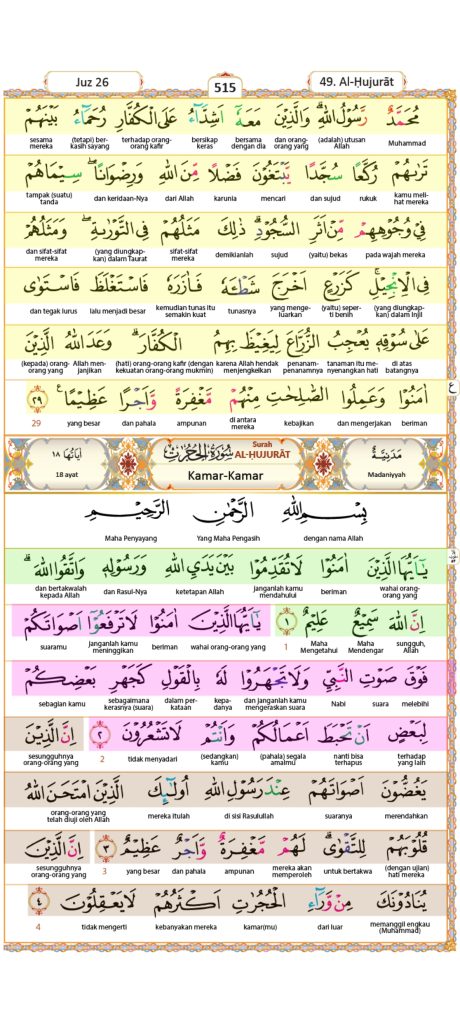 Juz 26
515
49. Al-Ḥujurāt
مُحَمَّدٌ رَّسُوْلُ اللّٰهِ ۗ وَالَّذِيْنَ مَعَهٗٓ اَشِدَّاۤءُ عَلَى الْكُفَّارِ رُحَمَاۤءُ بَيْنَهُمْ
Muhammad (adalah) utusan Allah dan orang-orang yang bersama dengan dia bersikap keras terhadap orang-orang kafir (tetapi) berkasih sayang sesama mereka
تَرٰىهُمْ رُكَّعًا سُجَّدًا يَّبْتَغُوْنَ فَضْلًا مِّنَ اللّٰهِ وَرِضْوَانًا ۖ سِيْمَاهُمْ
kamu melihat mereka rukuk dan sujud mencari karunia dari Allah dan keridaan-Nya tampak (suatu) tanda
فِيْ وُجُوْهِهِمْ مِّنْ اَثَرِ السُّجُوْدِ ۗ ذٰلِكَ مَثَلُهُمْ فِى التَّوْرٰىةِ ۖ وَمَثَلُهُمْ
pada wajah mereka (yaitu) bekas sujud demikianlah sifat-sifat mereka (yang diungkapkan) dalam Taurat dan sifat-sifat mereka
فِى الْاِنْجِيْلِ ۚ كَزَرْعٍ اَخْرَجَ شَطْـَٔهٗ فَاٰزَرَهٗ فَاسْتَغْلَظَ فَاسْتَوٰى
(yang diungkapkan) dalam Injil (yaitu) seperti benih yang mengeluarkan tunasnya kemudian tunas itu semakin kuat lalu menjadi besar dan tegak lurus
عَلٰى سُوْقِهٖ يُعْجِبُ الزُّرَّاعَ لِيَغِيْظَ بِهِمُ الْكُفَّارَ ۗ وَعَدَ اللّٰهُ الَّذِيْنَ
di atas batangnya tanaman itu menyenangkan hati penanam-penanamnya karena Allah hendak menjengkelkan (hati) orang-orang kafir (dengan kekuatan orang-orang mukmin) Allah menjanjikan (kepada) orang-orang yang
اٰمَنُوْا وَعَمِلُوا الصّٰلِحٰتِ مِنْهُمْ مَّغْفِرَةً وَّاَجْرًا عَظِيْمًا ࣖ ٢٩
beriman dan mengerjakan kebajikan di antara mereka ampunan dan pahala yang besar 29
ع
مَدَنِيَّةٌ
Madaniyyah
سُوْرَةُ الْحُجُرٰتِ
Surah
AL-ḤUJURĀT
Kamar-Kamar
اٰيَاتُهَا ١٨
18 ayat
بِسْمِ اللّٰهِ الرَّحْمٰنِ الرَّحِيْمِ
dengan nama Allah Yang Maha Pengasih Maha Penyayang
يٰٓاَيُّهَا الَّذِيْنَ اٰمَنُوْا لَا تُقَدِّمُوْا بَيْنَ يَدَيِ اللّٰهِ وَرَسُوْلِهٖ وَاتَّقُوا اللّٰهَ ۗ
wahai orang-orang yang beriman janganlah kamu mendahului ketetapan Allah dan Rasul-Nya dan bertakwalah kepada Allah
اِنَّ اللّٰهَ سَمِيْعٌ عَلِيْمٌ ١ يٰٓاَيُّهَا الَّذِيْنَ اٰمَنُوْا لَا تَرْفَعُوْٓا اَصْوَاتَكُمْ
sungguh, Allah Maha Mendengar Maha Mengetahui 1 wahai orang-orang yang beriman janganlah kamu meninggikan suaramu
فَوْقَ صَوْتِ النَّبِيِّ وَلَا تَجْهَرُوْا لَهٗ بِالْقَوْلِ كَجَهْرِ بَعْضِكُمْ
melebihi suara Nabi dan janganlah kamu mengeraskan suara kepadanya dalam perkataan sebagaimana kerasnya (suara) sebagian kamu
لِبَعْضٍ اَنْ تَحْبَطَ اَعْمَالُكُمْ وَاَنْتُمْ لَا تَشْعُرُوْنَ ٢ اِنَّ الَّذِيْنَ
terhadap yang lain nanti bisa terhapus (pahala) segala amalmu (sedangkan) kamu tidak menyadari 2 sesungguhnya orang-orang yang
يَغُضُّوْنَ اَصْوَاتَهُمْ عِنْدَ رَسُوْلِ اللّٰهِ اُولٰۤىِٕكَ الَّذِيْنَ امْتَحَنَ اللّٰهُ
merendahkan suaranya di sisi Rasulullah mereka itulah orang-orang yang telah diuji oleh Allah
قُلُوْبَهُمْ لِلتَّقْوٰى ۗ لَهُمْ مَّغْفِرَةٌ وَّاَجْرٌ عَظِيْمٌ ٣ اِنَّ الَّذِيْنَ
(dengan ujian) hati mereka untuk bertakwa mereka akan memperoleh ampunan dan pahala yang besar 3 sesungguhnya orang-orang yang
يُنَادُوْنَكَ مِنْ وَّرَاۤءِ الْحُجُرٰتِ اَكْثَرُهُمْ لَا يَعْقِلُوْنَ ٤
memanggil engkau (Muhammad) dari luar kamar(mu) kebanyakan mereka tidak mengerti 4